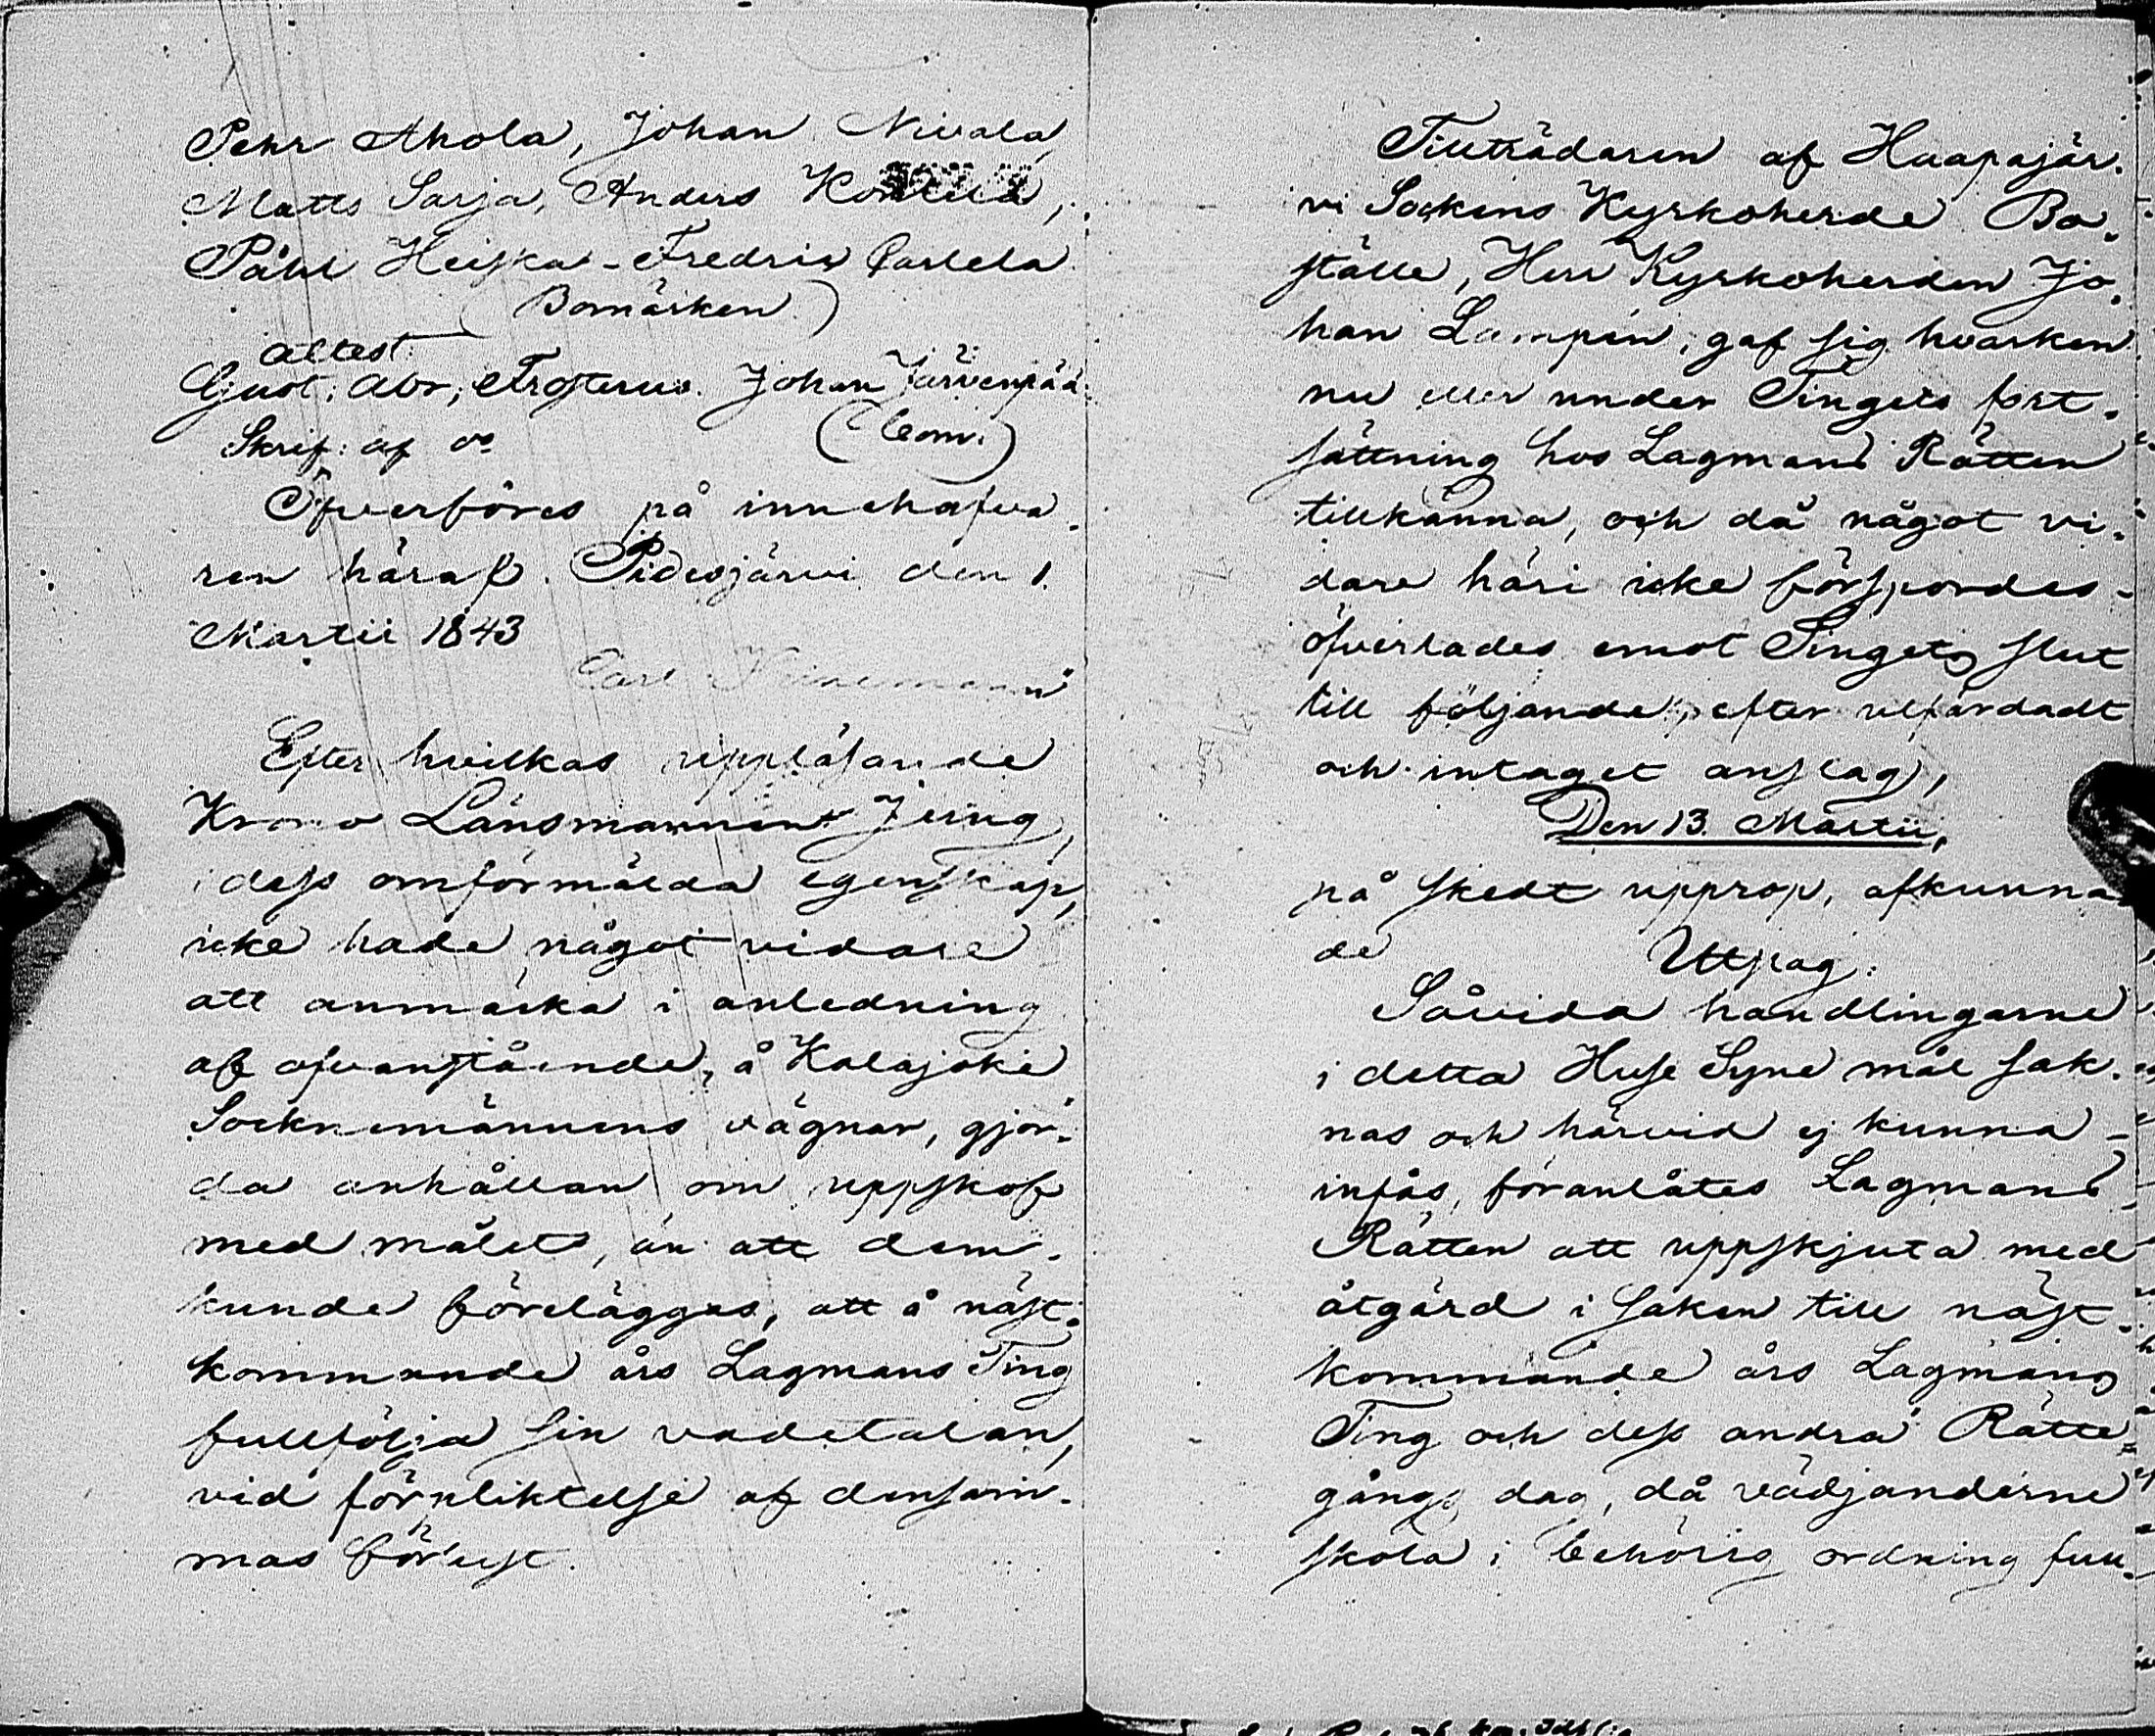 Pehr Ahola, Johan Nivala,
Matts Sarja, Anders
Påhl Heiska - Fredric Parlela
(Bomärken)
attest:
Gust: Abr; Frosterus. Johan Järvenpää
Skrif: af
(Com:)
Öfverföres på innehafva-
ren häraf. Pidesjärvi den 1.
Martii 1843
Carl
Efter hvilkas uppläsande
Krono Länsmannen Jeung,
i dess omförmälda egenskap,
icke hade något vidare
att anmärka i anledning
af ofvanstående, å Kalajoki
Socknemännens vägnar, gjor-
da anhållan om uppskof
med målet, än att dem
kunde föreläggas, att å näst-
kommande års Lagmans Ting
fullfölja sin vadetalan,
vid förpliktelse af densam-
mas förlust.
Tillträdaren af Haapajär-
vi Sockens Kyrkoherde Bo-
ställe, Herr Kyrkoherden Jo-
han Lampén, gaf sig hvarken
nu eller under Tingets fort-
sättning hos Lagmans Rätten
tillkänna, och då något vi-
dare häri icke förspordes -
öfverlades emot Tingets slut
till följande, efter utfärdadt
och intaget anslag,
Den 13 Martii,
på skedt upprop, afkunna-
de Utslag:
Såvida handlingarne
i detta Huse Syne mål sak-
nas och härvid ej kunna -
infås, föranlåtes Lagmans
Rätten att uppskjuta med
åtgärd i saken till näst-
kommande års Lagmans
Ting och dess andra Rätte-
gångs dag, då vädjanderne
skola i behörig ordning full-